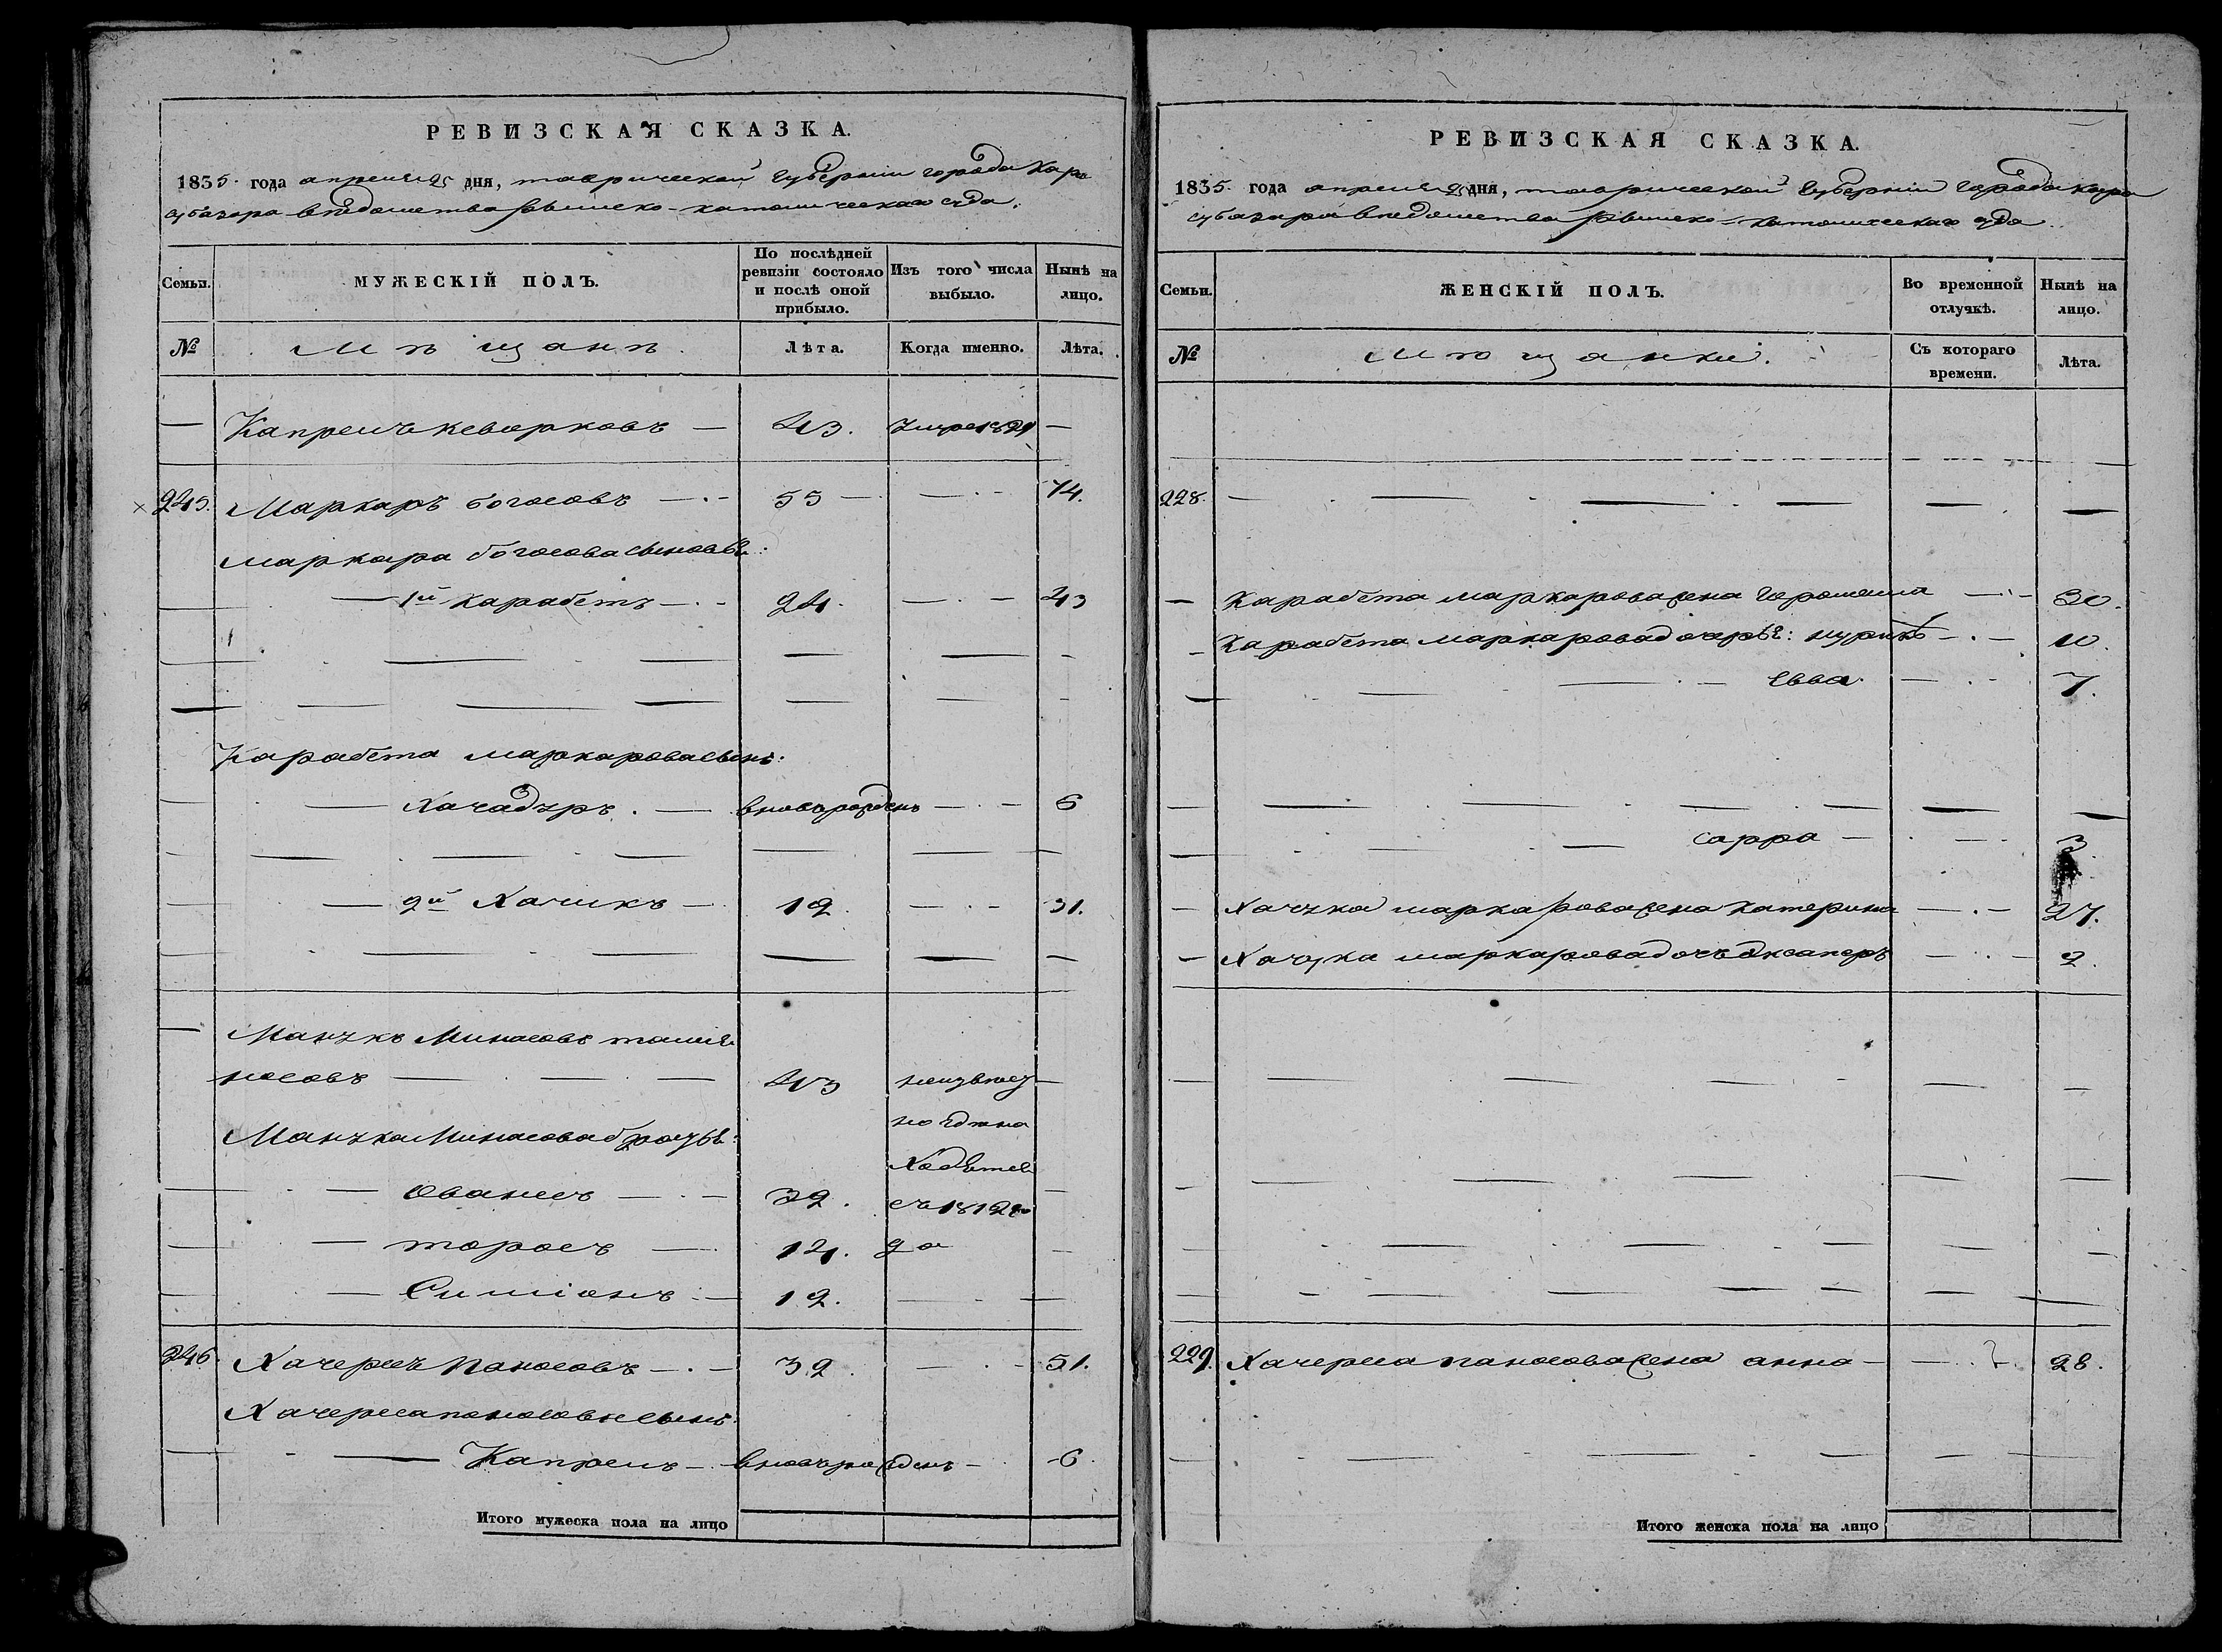 РЕВИЗСКАЯ СКАЗКА.
1835 года апреля 25 дня, таврической губернии города Кара
субазара ведомства римско-католическаго суда.
Семьи.
МУЖЕСКІЙ ПОЛЪ.
По послѣдней ревизіи состояло и послѣ оной прибыло.
Изъ того числа выбыло.
Нынѣ на лицо.
№
Мѣщанъ
Лѣта.
Когда именно.
Лѣта.
— Капрелъ кеворковъ — 43. Умре 1829 —
245. Маркаръ богосовъ — 55 — 74.
маркара богосова сыновья:
— 1й карабетъ — 24. — 43
Карабета маркарова сынъ:
— Хачадуръ. — вновърожденъ — 6
— 2й Хачикъ — 19 — 31.
— Манукъ Минасовъ
носовъ — 43 неизвест
но где на
Манука Минасова братья:
ходятся
— Ованесъ — 32. съ 1812 го
— торосъ — 14. да
— Симионъ — 12. —
246. Хачересъ Паносовъ — 32. — 51.
Хачереса паносова сынъ:
— Капрелъ — вновърожденъ — 6.
Итого мужеска пола на лицо
РЕВИЗСКАЯ СКАЗКА.
1835 года апреля 25 дня, таврической губернии города кара
субазара ведомства римско-католическаго суда.
Семьи.
ЖЕНСКІЙ ПОЛЪ.
Во временной отлучкѣ.
Нынѣ на лицо.
№
Мѣщанки.
Съ котораго времени.
Лѣта.
228. —
— Карабета маркарова жена — 30.
— Карабета маркарова дочерье: — 10.
— Евва — 7.
— сарра — 3.
— Хачука маркарова жена катерина — 27.
— Хачука маркарова дочъ — 2.
229. Хачереса паносова жена анна — 28.
Итого женска пола на лицо